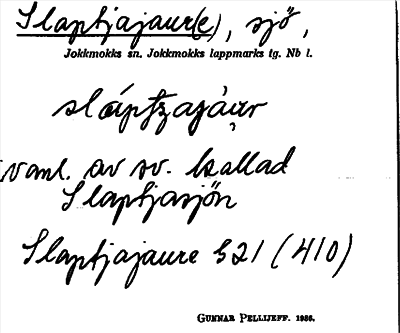 Slaptjajaur(e), sjö,
Jokkmokks sn. Jokkmokks lappmarks tg. Nb l.
slaptzajáur
vanl. av sv. kallad
Slaptjasjön
Slaptjajaure 521 (410)
GUNNAR PELLIJEFF. 1956.